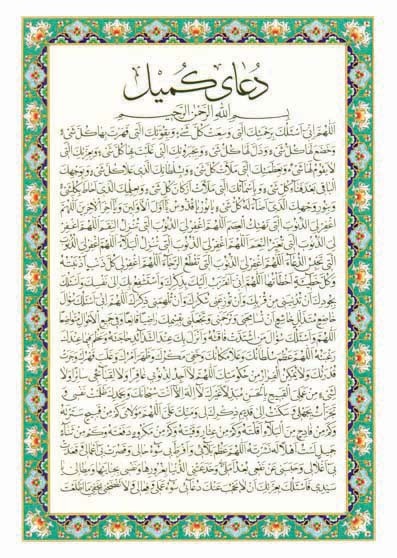 دعای کمیل
بسم الله الرحمن الرحیم
اللهم انی اسئلک برحمتک التی وسعت کل شیء وبقوتک التی قهرت بها کل شیء
وخضع لها کل شیء وذل لها کل شیء وبجبروتک التی غلبت بها کل شیء وبعزتک التی
لا یقوم لها شیء وبعظمتک التی ملأت کل شیء وبسلطانک الذی علا کل شیء وبوجهک
الباقی بعد فناء کل شیء وباسمائک التی ملأت ارکان کل شیء وبعلمک الذی احاط بکل شیء
وبنور وجهک الذی اضاء له کل شیء یا نور یا قدوس یا اول الاولین ویا اخر الاخرین اللهم
اغفر لی الذنوب التی تهتک العصم اللهم اغفر لی الذنوب التی تنزل النقم اللهم اغفر
لی الذنوب التی تغیر النعم اللهم اغفر لی الذنوب التی تنزل البلاء اللهم اغفر لی الذنوب
التی تحبس الدعاء اللهم اغفر لی الذنوب التی تقطع الرجاء اللهم اغفر لی کل ذنب اذنبته
وکل خطیئة اخطأتها اللهم انی اتقرب الیک بذکرک واستشفع بک الی نفسک واسئلک
بجودک ان تدنینی من قربک وان توزعنی شکرک وان تلهمنی ذکرک اللهم انی اسئلک سؤال
خاضع متذلل خاشع ان تسامحنی وترحمنی وتجعلنی بقسمک راضیا قانعا وفی جمیع الاحوال متواضعا
اللهم واسئلک سؤال من اشتدت فاقته وانزل بک عند الشدائد حاجته وعظم فیما عندک
رغبته اللهم عظم سلطانک وعلا مکانک وخفی مکرک وظهر امرک وغلب قهرک وجرت
قدرتک ولا یمکن الفرار من حکومتک اللهم لا اجد لذنوبی غافرا ولا لقبائحی ساترا ولا
لشیء من عملی القبیح بالحسن مبدلا غیرک لا اله الا انت سبحانک وبحمدک ظلمت نفسی و
تجرأت بجهلی وسکنت الی قدیم ذکرک لی ومنک علی اللهم مولای کم من قبیح سترته
وکم من فادح من البلاء اقلته وکم من عثار وقیته وکم من مکروه دفعته وکم من ثناء
جمیل لست اهلا له نشرته اللهم عظم بلائی وافرط بی سوء حالی وقصرت بی اعمالی وقعدت
بی اغلالی وحبسنی عن نفعی بعد املی وخدعتنی الدنیا بغرورها ونفسی بجنایتها ومطالی یا
سیدی فاسئلک بعزتک ان لا یحجب عنک دعائی سوء عملی وفعالی ولا تفضحنی بخفی ما اطلعت